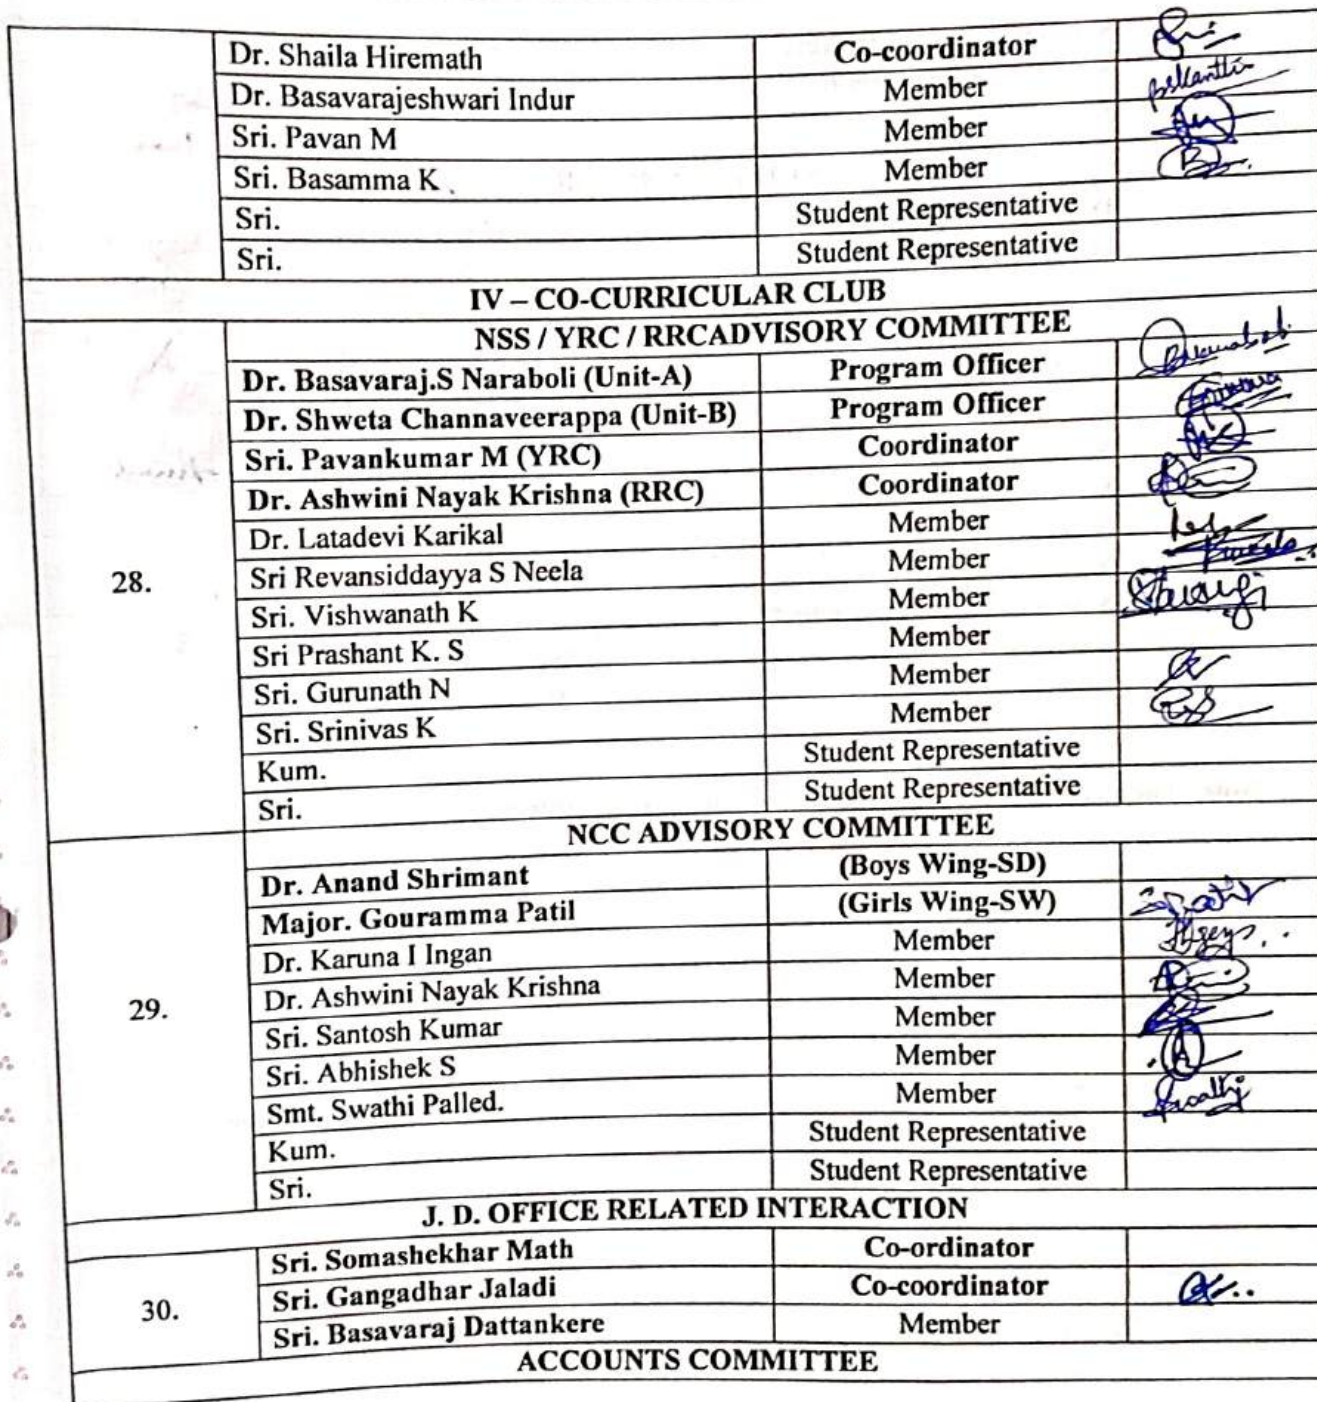 Dr. Shaila Hiremath Co-coordinator
Dr. Basavarajeshwari Indur Member
Sri. Pavan M Member
Sri. Basamma K Member
Sri. Student Representative
Sri. Student Representative
IV – CO-CURRICULAR CLUB
28.
NSS / YRC / RRCADVISORY COMMITTEE
Dr. Basavaraj.S Naraboli (Unit-A) Program Officer
Dr. Shweta Channaveerappa (Unit-B) Program Officer
Sri. Pavankumar M (YRC) Coordinator
Dr. Ashwini Nayak Krishna (RRC) Coordinator
Dr. Latadevi Karikal Member
Sri Revansiddayya S Neela Member
Sri. Vishwanath K Member
Sri Prashant K. S Member
Sri. Gurunath N Member
Sri. Srinivas K Member
Kum. Student Representative
Sri. Student Representative
29.
NCC ADVISORY COMMITTEE
Dr. Anand Shrimant (Boys Wing-SD)
Major. Gouramma Patil (Girls Wing-SW)
Dr. Karuna I Ingan Member
Dr. Ashwini Nayak Krishna Member
Sri. Santosh Kumar Member
Sri. Abhishek S Member
Smt. Swathi Palled. Member
Kum. Student Representative
Sri. Student Representative
J. D. OFFICE RELATED INTERACTION
30.
Sri. Somashekhar Math Co-ordinator
Sri. Gangadhar Jaladi Co-coordinator
Sri. Basavaraj Dattankere Member
ACCOUNTS COMMITTEE